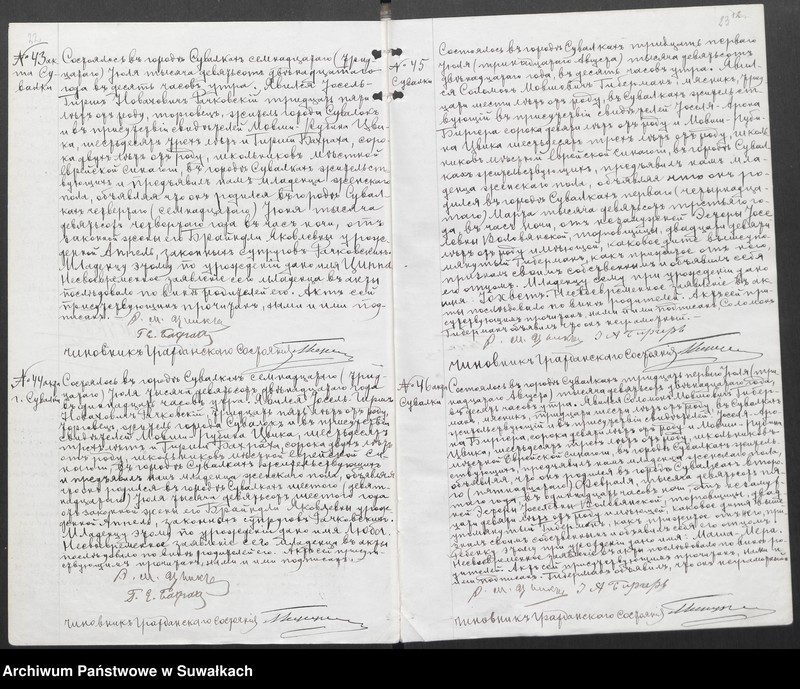 № 43 ак
та Су-
валки
Состоялось въ городѣ Сувалкахъ семнадцатаго (трид-
цатаго) Іюля тысяча девятьсотъ двѣнадцатаго
года въ десять часовъ утра. Явился Іосель-
Гиршъ Новаховичъ Рачковскій тридцати пяти
лѣтъ отъ роду, торговецъ, житель города Сувалокъ
и въ присутствіи свидѣтелей Мовши-Рубина Цви-
ка, шестьдесятъ трехъ лѣтъ и Гирша Бахраха, соро-
ка двухъ лѣтъ отъ роду, школьниковъ мѣстной
Еврейской синагоги, въ городѣ Сувалкахъ жительст-
вующихъ и предъявилъ намъ младенца женскаго
пола, объявляя что онъ родился въ городѣ Сувал-
кахъ четвертаго (семнадцатаго) Іюня тысяча
девятьсотъ четвертаго года въ часъ ночи, отъ
законной жены его Брайндли Яковлевны урож-
денной Аптель, законныхъ супруговъ Рачковскихъ.
Младенцу этому по урожденіи дано имя Ципка
Несвоевременное заявленіе сего младенца въ акты
послѣдовало по винѣ родителей его. Актъ сей
присутствующимъ прочитанъ, нами и ими под-
писанъ.
Р. М. Цвикъ
Г. Бахрахъ
Чиновникъ Гражданскаго Состоянія
№ 44 акта
г. Сувалки
Состоялось въ городѣ Сувалкахъ семнадцатаго (трид-
цатаго) Іюля тысяча девятьсотъ двѣнадцатаго года
въ одиннадцать часовъ утра. Явился Іосель-Гиршъ
Новаховичъ Рачковскій, тридцати пяти лѣтъ отъ роду,
торговецъ, житель города Сувалокъ и въ присутствіи
свидѣтелей Мовши-Рубина Цвика, шестьдесятъ
трехъ лѣтъ и Гирша Бахраха, сорока двухъ лѣтъ
отъ роду, школьниковъ мѣстной Еврейской Си-
нагоги, въ городѣ Сувалкахъ жительствующихъ
и предъявилъ намъ младенца женскаго пола, объявляя
что онъ родился въ городѣ Сувалкахъ шестого (девят-
надцатаго) Іюля тысяча девятьсотъ шестого года
отъ законной жены его Брайндли Яковлевны урож-
денной Аптель, законныхъ супруговъ Рачковскихъ.
Младенцу этому по урожденіи дано имя Любка.
Несвоевременное заявленіе сего младенца въ акты
послѣдовало по винѣ родителей его. Актъ сей присут-
ствующимъ прочитанъ, нами и ими подписанъ.
Р. М. Цвикъ
Г. Бахрахъ
Чиновникъ Гражданскаго Состоянія
23
№ 45
Сувалки
Состоялось въ городѣ Сувалкахъ тридцать перваго
Іюля (тринадцатаго Августа) тысяча девятьсотъ
двѣнадцатаго года, въ десять часовъ утра. Явил-
ся Соломонъ Мовшевичъ Гиберманъ, мясникъ, трид-
цати шести лѣтъ отъ роду, въ Сувалкахъ жительст-
вующій въ присутствіи свидѣтелей Іоселя-Арона
Биргера сорока девяти лѣтъ отъ роду и Мовши-Руби-
на Цвика шестьдесятъ трехъ лѣтъ отъ роду, школь-
никовъ мѣстной Еврейской Синагоги, въ городѣ Сувал-
кахъ жительствующихъ, предъявилъ намъ мла-
денца женскаго пола, объявляя что онъ ро-
дился въ городѣ Сувалкахъ перваго (четырнадца-
таго) Марта тысяча девятьсотъ третьяго го-
да, въ часъ ночи, отъ незамужней Эсфири Іосе-
левны Воловянской, торговщицы, двадцати девяти
лѣтъ отъ роду имѣющей, каковое дитя выше упо-
мянутый Гиберманъ, какъ прижитое отъ него,
призналъ своимъ собственнымъ и объявилъ себя
его отцомъ. Младенцу сему при урожденіи дано
имя: Несвоевременное заявленіе въ ак-
ты послѣдовало по винѣ родителей. Актъ сей при-
сутствующимъ прочитанъ, нами и ими подписанъ Соломонъ
Гиберманъ объявилъ что онъ неграмотный.
Р. М. Цвикъ І А Биргеръ
Чиновникъ Гражданскаго Состоянія
№ 46 акта
Сувалки
Состоялось въ городѣ Сувалкахъ тридцать перваго Іюля (три-
надцатаго Августа) тысяча девятьсотъ двѣнадцатаго года,
въ десять часовъ утра. Явился Соломонъ Мовшевичъ Гибер-
манъ, мясникъ, тридцати шести лѣтъ отъ роду, въ Сувалкахъ
жительствующій и въ присутствіи свидѣтелей: Іоселя-Аро-
на Биргера, сорока девяти лѣтъ отъ роду и Мовши-Рубина
Цвика, шестьдесятъ трехъ лѣтъ отъ роду, школьниковъ
мѣстной Еврейской Синагоги, въ городѣ Сувалкахъ житель-
ствующихъ, предъявилъ намъ младенца женскаго пола,
объявляя, что онъ родился въ городѣ Сувалкахъ второ-
го (пятнадцатаго) Февраля, тысяча девятьсотъ пя-
таго года въ одиннадцать часовъ ночи, отъ незамуж-
ней Эсфири Іоселевны Воловянской торговщицы, двад-
цати девяти лѣтъ отъ роду имѣющей, каковое дитя выше
упомянутый Гиберманъ, какъ прижитое отъ него, при-
зналъ своимъ собственнымъ и объявилъ себя его отцомъ.
Ребенку этому при урожденіи дано имя: Маша-Мера.
Несвоевременное заявленіе въ акты послѣдовало по винѣ ро-
дителей. Актъ сей присутствующимъ прочитанъ, нами и
ими подписанъ. Гиберманъ объявилъ, что онъ неграмотный.
Р. М. Цвикъ І А Биргеръ
Чиновникъ Гражданскаго Состоянія
Archiwum Państwowe w Suwałkach